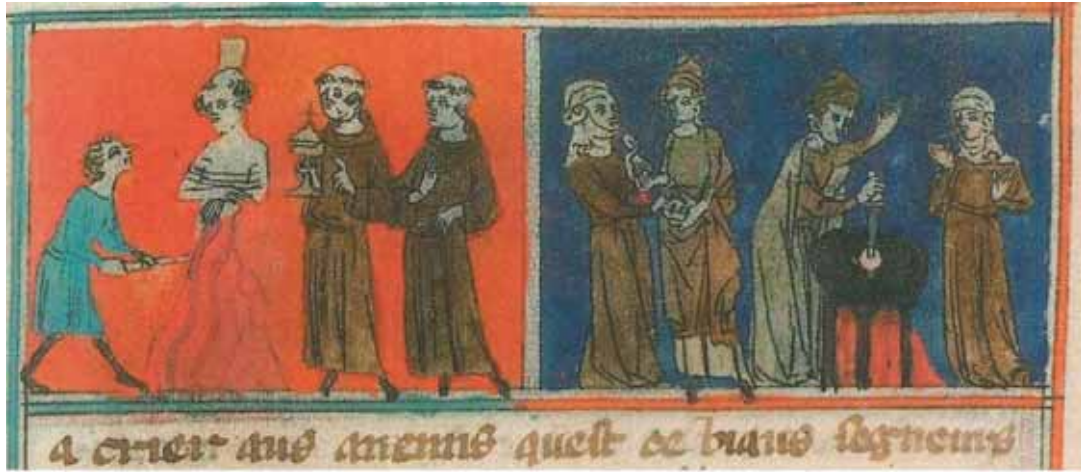 a crier aus anemis quest ce biaus segneurs